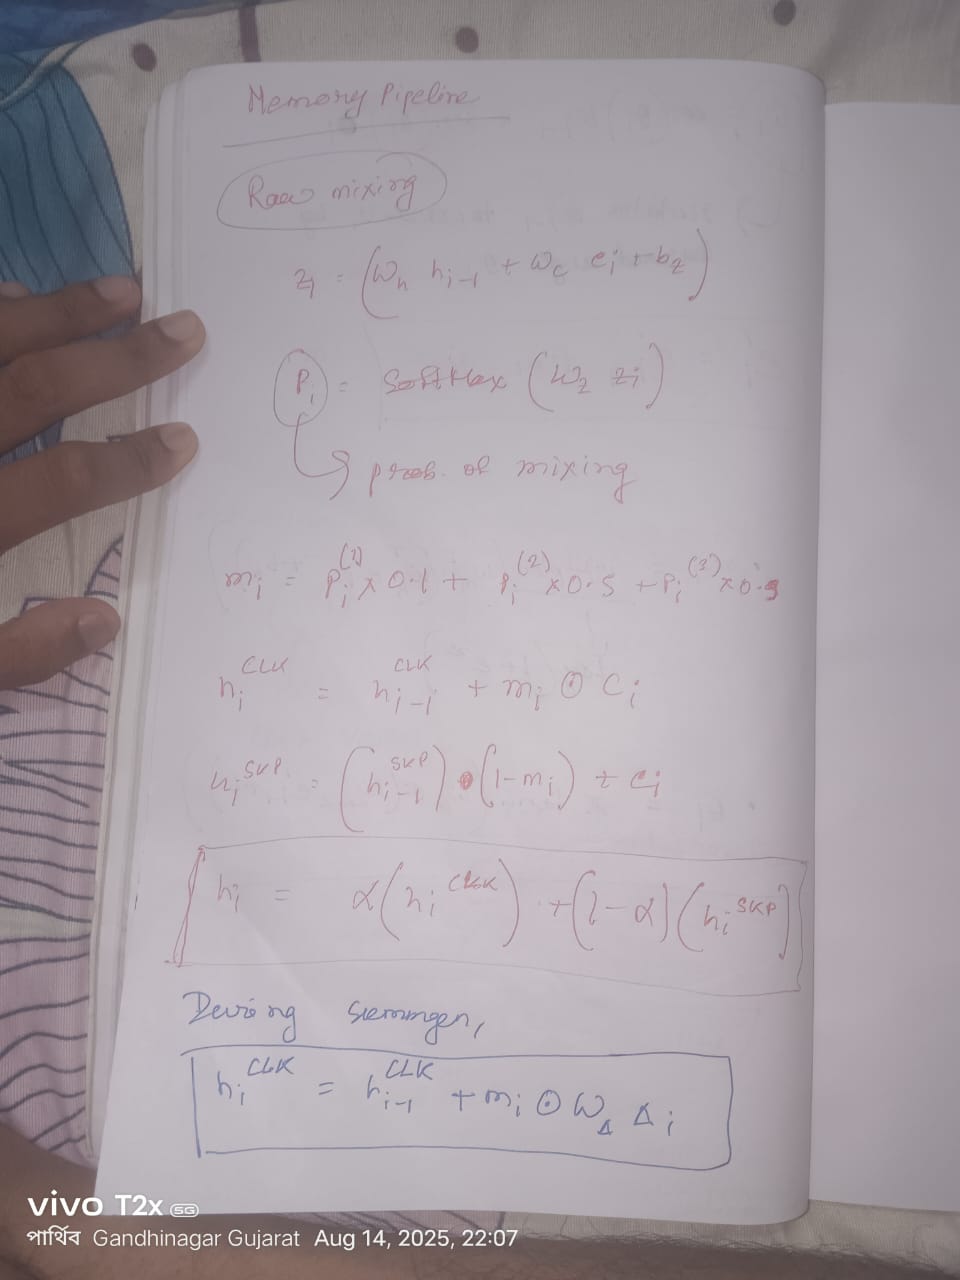 Memory Pipeline
Raw mixing
z_i = (W_h h_{i-1} + W_c c_i + b_z)
P_i = SoftMax (W_z z_i)
prob. of mixing
m_i = P_i^{(1)} x 0.1 + P_i^{(2)} x 0.5 + P_i^{(3)} x 0.9
h_i^{CLK} = h_{i-1}^{CLK} + m_i ⊙ c_i
h_i^{SKP} = (h_{i-1}^{SKP}) • (1 - m_i) + c_i
h_i = α(h_i^{CLK}) + (1-α)(h_i^{SKP})
h_i^{CLK} = h_{i-1}^{CLK} + m_i ⊙ W_Δ Δ_i
vivo T2x 5G
পার্থিব Gandhinagar Gujarat Aug 14, 2025, 22:07